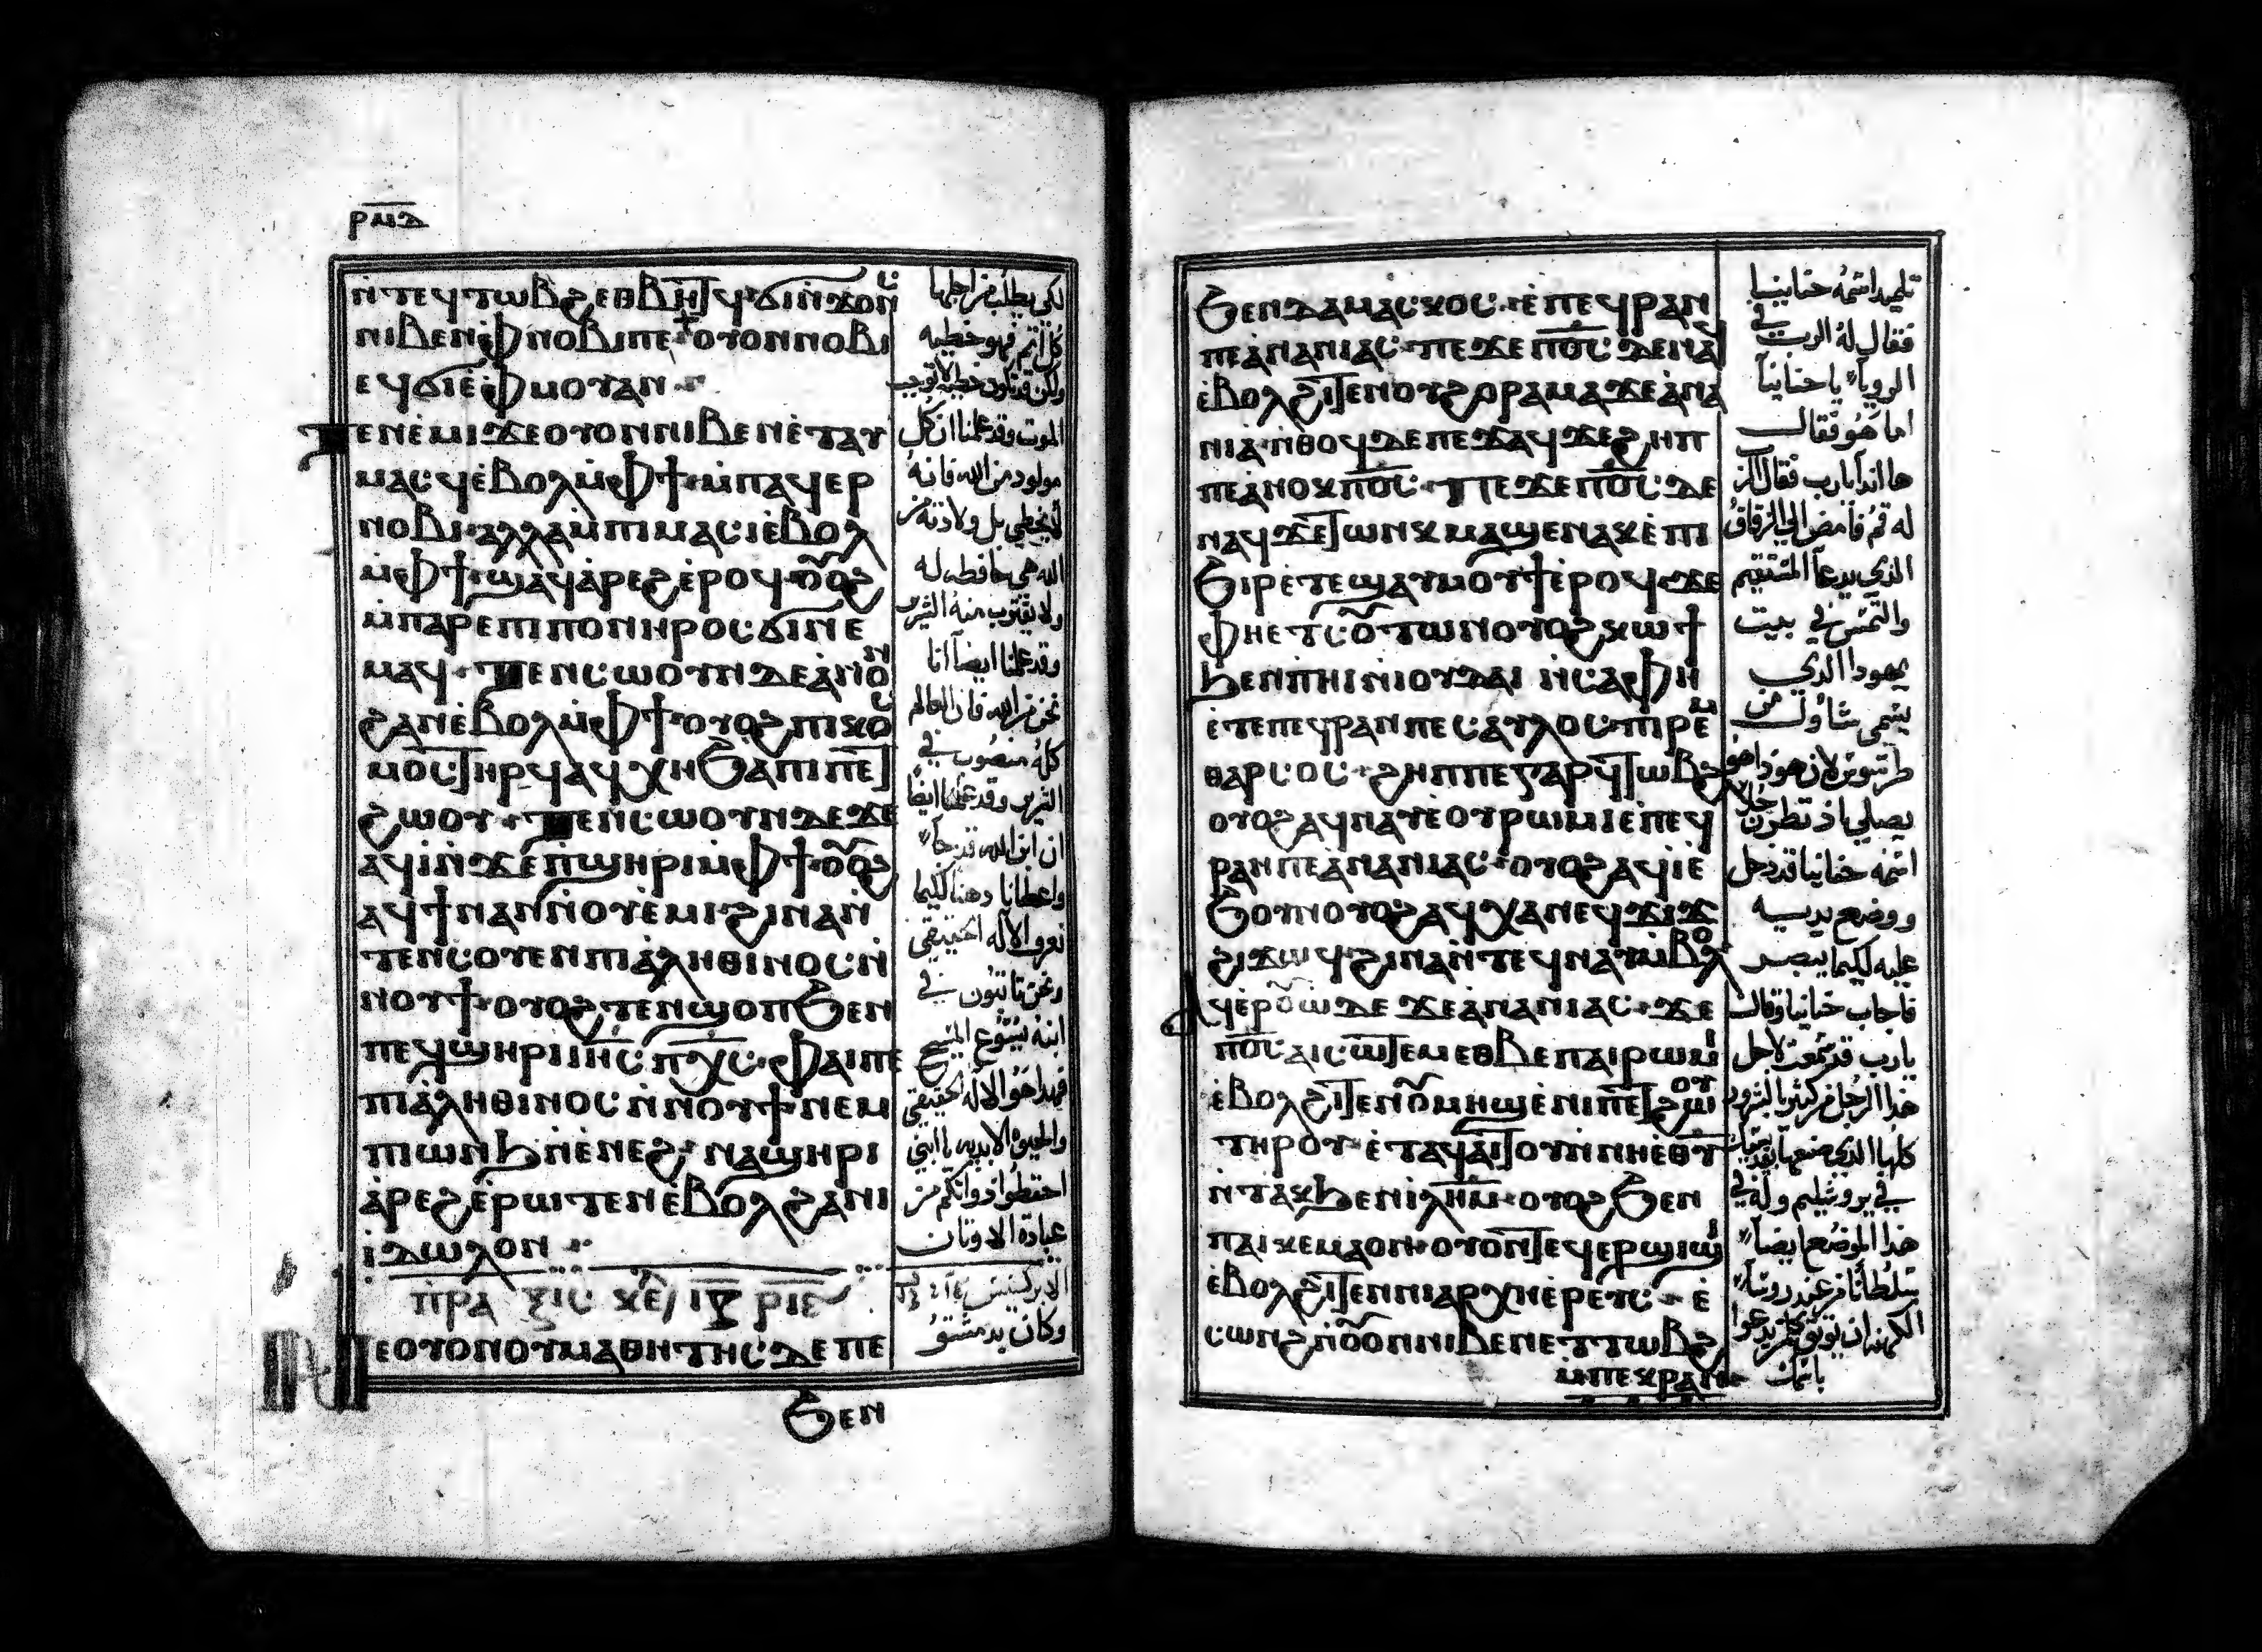 ⲣⲙⲇ
ⲛ̀ⲧⲉϥⲧⲱⲃϩ ⲉⲑⲃⲏⲧϥ ϭⲓⲛϫⲟⲛⲥ
ⲛⲓⲃⲉⲛ ⲫⲛⲟⲃⲓ ⲡⲉ ⲟⲩⲟⲛ ⲛⲟⲃⲓ
ⲉϥϭⲓ ⲉ̀ⲫⲙⲟⲩ ⲁⲛ
ⲧⲉⲛⲉ̀ⲙⲓ ϫⲉ ⲟⲩⲟⲛ ⲛⲓⲃⲉⲛ ⲉ̀ⲧⲁⲩ
ⲙⲁⲥϥ ⲉ̀ⲃⲟⲗ ⲙ̀ⲫϯ ⲙ̀ⲡⲁϥⲉⲣ
ⲛⲟⲃⲓ ⲁⲗⲗⲁ ⲙ̀ⲡⲓⲙⲁⲥⲓ ⲉ̀ⲃⲟⲗ
ⲙ̀ⲫϯ ϣⲁϥⲁ̀ⲣⲉϩ ⲉ̀ⲣⲟϥ ⲟⲩⲟϩ
ⲙ̀ⲡⲁⲣⲉ ⲡⲓⲡⲟⲛⲏⲣⲟⲥ ϭⲓ ⲛⲉ
ⲙⲁϥ ⲧⲉⲛⲥⲱⲟⲩⲛ ⲇⲉ ⲁ̀ⲛⲟⲛ
ϩⲁⲛⲉ̀ⲃⲟⲗ ⲙ̀ⲫϯ ⲟⲩⲟϩ ⲡⲓⲕⲟⲥ
ⲙⲟⲥ ⲧⲏⲣϥ ⲁϥⲭⲏ ϧⲁ ⲡⲓⲡⲉⲧ
ϩⲱⲟⲩ ⲧⲉⲛⲥⲱⲟⲩⲛ ⲇⲉ ϫⲉ
ⲁϥⲓ̀ ⲛ̀ϫⲉ ⲡ̀ϣⲏⲣⲓ ⲙ̀ⲫϯ ⲟⲩⲟϩ
ⲁϥϯ ⲛⲁⲛ ⲛ̀ⲟⲩⲉ̀ⲙⲓ ϩⲓⲛⲁ ⲛ̀
ⲧⲉⲛⲥⲟⲩⲉⲛ ⲡⲓⲁ̀ⲗⲏⲑⲓⲛⲟⲥ ⲛ̀
ⲛⲟⲩϯ ⲟⲩⲟϩ ⲧⲉⲛϣⲟⲡ ϧⲉⲛ
ⲡⲉϥϣⲏⲣⲓ ⲓⲏⲥ ⲡⲭⲥ ⲫⲁⲓ ⲡⲉ
ⲡⲓⲁ̀ⲗⲏⲑⲓⲛⲟⲥ ⲛ̀ⲛⲟⲩϯ ⲛⲉⲙ
ⲡⲓⲱⲛϧ ⲛ̀ⲉ̀ⲛⲉϩ ⲛⲁϣⲏⲣⲓ
ⲁ̀ⲣⲉϩ ⲉ̀ⲣⲱⲧⲉⲛ ⲉ̀ⲃⲟⲗ ϩⲁ ⲛⲓ
ⲓ̀ⲇⲱⲗⲟⲛ
ⲡⲣⲁⲝⲓⲥ ⲕⲉ ⲓⲅ ⲣⲓⲉ
ⲛⲉ ⲟⲩⲟⲛ ⲟⲩⲙⲁⲑⲏⲧⲏⲥ ⲇⲉ ⲡⲉ
ϧⲉⲛ
لكي يطلب من اجلها
كل اثم فهو خطيه
ولكن قد تكون خطيه لا توجب
الموت وقد علمنا ان كل
مولود من الله فانه
لا يخطي بل ولادته من
الله هي حافظه له
ولا يقترب منه الشرير
وقد علمنا ايضا اننا
نحن من الله فان العالم
كله منصوب في
الشرير وقد علمنا ايضا
ان ابن الله قد جا
واعطانا دهنا لكيما
نعرف الاله الحقيقي
ونحن ثابتون في
ابنه يسوع المسيح
فهذا هو الاله الحقيقي
والحيوه الابديه يا ابني
احتفظوا ذواتكم من
عبادة الاوثان
الابركسيس
وكان بدمشق
ϧⲉⲛ ⲇⲁⲙⲁⲥⲕⲟⲥ ⲉ̀ⲡⲉϥⲣⲁⲛ
ⲡⲉ ⲁ̀ⲛⲁⲛⲓⲁⲥ ⲡⲉϫⲉ ⲡⲟⲥ ⲇⲉ ⲛⲁϥ
ⲉ̀ⲃⲟⲗϩⲓⲧⲉⲛ ⲟⲩϩⲟⲣⲁⲙⲁ ϫⲉ ⲁ̀ⲛⲁ
ⲛⲓⲁ ⲛ̀ⲑⲟϥ ⲇⲉ ⲡⲉϫⲁϥ ϫⲉ ϩⲏⲡ
ⲡⲉ ⲁ̀ⲛⲟⲕ ⲡⲟⲥ ⲡⲉϫⲉ ⲡⲟⲥ ⲇⲉ
ⲛⲁϥ ϫⲉ ⲧⲱⲛⲕ ⲙⲁϣⲉ ⲛⲁⲕ ⲉ̀ⲡⲓ
ϧⲓⲣ ⲉ̀ⲧⲉϣⲁⲩⲙⲟⲩϯ ⲉ̀ⲣⲟϥ ϫⲉ
ⲫⲏⲉⲧⲥⲟⲩⲧⲱⲛ ⲟⲩⲟϩ ⲕⲱϯ
ϧⲉⲛ ⲡⲏⲓ ⲛ̀ⲓⲟⲩⲇⲁ ⲛ̀ⲥⲁ ⲫⲏ
ⲉ̀ⲧⲉ ⲡⲉϥⲣⲁⲛ ⲡⲉ ⲥⲁⲩⲗⲟⲥ ⲡⲓⲣⲉⲙ
ⲑⲁⲣⲥⲟⲥ ϩⲏⲡⲡⲉ ⲅⲁⲣ ϥⲧⲱⲃϩ
ⲟⲩⲟϩ ⲁϥⲛⲁⲩ ⲉ̀ⲟⲩⲣⲱⲙⲓ ⲉ̀ⲡⲉϥ
ⲣⲁⲛ ⲡⲉ ⲁ̀ⲛⲁⲛⲓⲁⲥ ⲟⲩⲟϩ ⲁϥⲓ̀ ⲉ̀
ϧⲟⲩⲛ ⲟⲩⲟϩ ⲁϥⲭⲁ ⲛⲉϥϫⲓϫ
ϩⲓϫⲱϥ ϩⲓⲛⲁ ⲛ̀ⲧⲉϥⲛⲁⲩ ⲙ̀ⲃⲟⲗ
ⲁϥⲉⲣⲟⲩⲱ ⲇⲉ ϫⲉ ⲁ̀ⲛⲁⲛⲓⲁⲥ ϫⲉ
ⲡⲟⲥ ⲁⲓⲥⲱⲧⲉⲙ ⲉⲑⲃⲉ ⲡⲁⲓⲣⲱⲙⲓ
ⲉ̀ⲃⲟⲗϩⲓⲧⲉⲛ ⲟⲩⲙⲏϣ ⲉ̀ⲛⲓⲡⲉⲧϩⲱⲟⲩ
ⲧⲏⲣⲟⲩ ⲉ̀ⲧⲁϥⲁⲓⲧⲟⲩ ⲛ̀ⲛⲏⲉⲑⲩ
ⲛ̀ⲧⲁⲕ ϧⲉⲛ ⲓⲗⲏⲙ ⲟⲩⲟϩ ϧⲉⲛ
ⲡⲁⲓⲕⲉⲙⲁ ⲟⲛ ⲟⲩⲟⲛⲧⲉϥ ⲉⲣϣⲓϣⲓ
ⲉ̀ⲃⲟⲗϩⲓⲧⲉⲛ ⲛⲓⲁⲣⲭⲏⲉ̀ⲣⲉⲩⲥ ⲉ̀
ⲥⲱⲛϩ ⲛ̀ⲟⲩⲟⲛ ⲛⲓⲃⲉⲛ ⲉⲧⲧⲱⲃϩ
ⲙ̀ⲡⲉⲕⲣⲁⲛ
تلميدا اسمه حنانيا
فقال له الرب في
الرويا يا حنانيا
اما هو فقال
ها انذا يارب فقال الرب
له قم فامض الى الزقاق
الذي يدعا المستقيم
والتمس في بيت
يهودا الذي
يسمى شاول من
طرسوس لان هوذا هو
يصلي اذ نظر رجلا
اسمه حنانيا قد دخل
ووضع يديه
عليه لكيما يبصر
فاجاب حنانيا وقال
يارب قد سمعت لاجل
هذا الرجل من كثير بالشرور
كلها الذي صنعها بقديسيك
في يروشليم وله في
هذا الموضع ايضا
سلطانا من عند روسا
الكهنه ان يوثق كل من يدعوا
باسمك